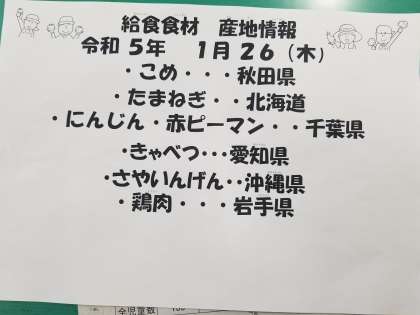 給食食材　産地情報
令和 5年　1月 26（木）
・こめ・・・秋田県
・たまねぎ・・北海道
・にんじん・赤ピーマン・・千葉県
・きゃべつ・・・愛知県
・さやいんげん・・沖縄県
・鶏肉・・・岩手県
全児童数